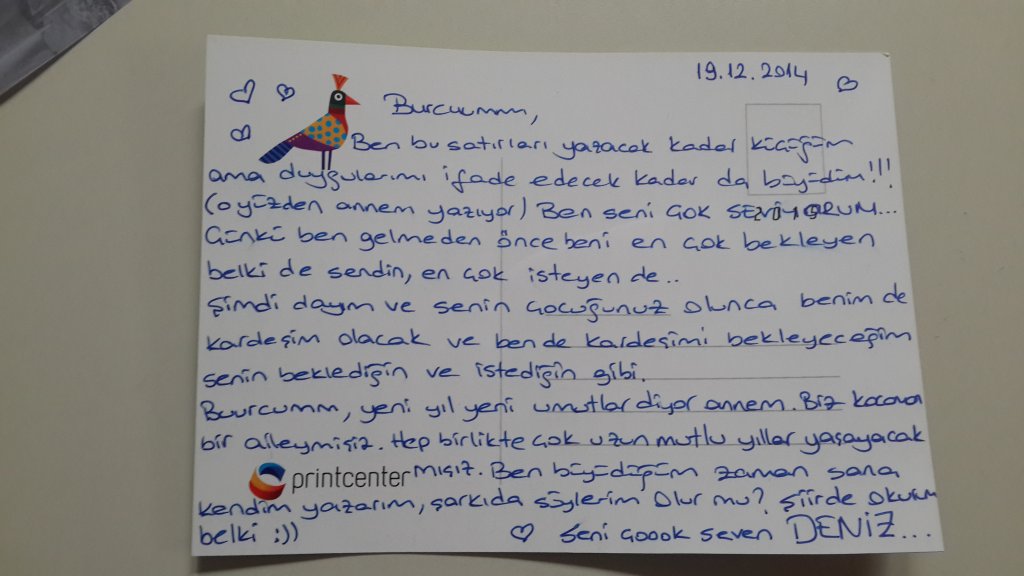 19.12.2014
Burcuumm,
Ben bu satırları yazacak kadar küçüğüm
ama duygularımı ifade edecek kadar da büyüdüm!!!
(o yüzden annem yazıyor) Ben seni çok SEViYORUM...
Çünkü ben gelmeden önce beni en çok bekleyen
belki de sendin, en çok isteyen de..
Şimdi dayım ve senin çocuğunuz olunca benim de
kardeşim olacak ve ben de kardeşimi bekleyeceğim
senin beklediğin ve istediğin gibi.
Buurcumm, yeni yıl yeni umutlar diyor annem. Biz kocaman
bir aileymişiz. Hep birlikte çok uzun mutlu yıllar yaşayacak
printcenter mışız. Ben büyüdüğüm zaman sana
kendim yazarım, şarkıda söylerim olur mu? şiirde okurum
belki :))
Seni çoook seven DENİZ...